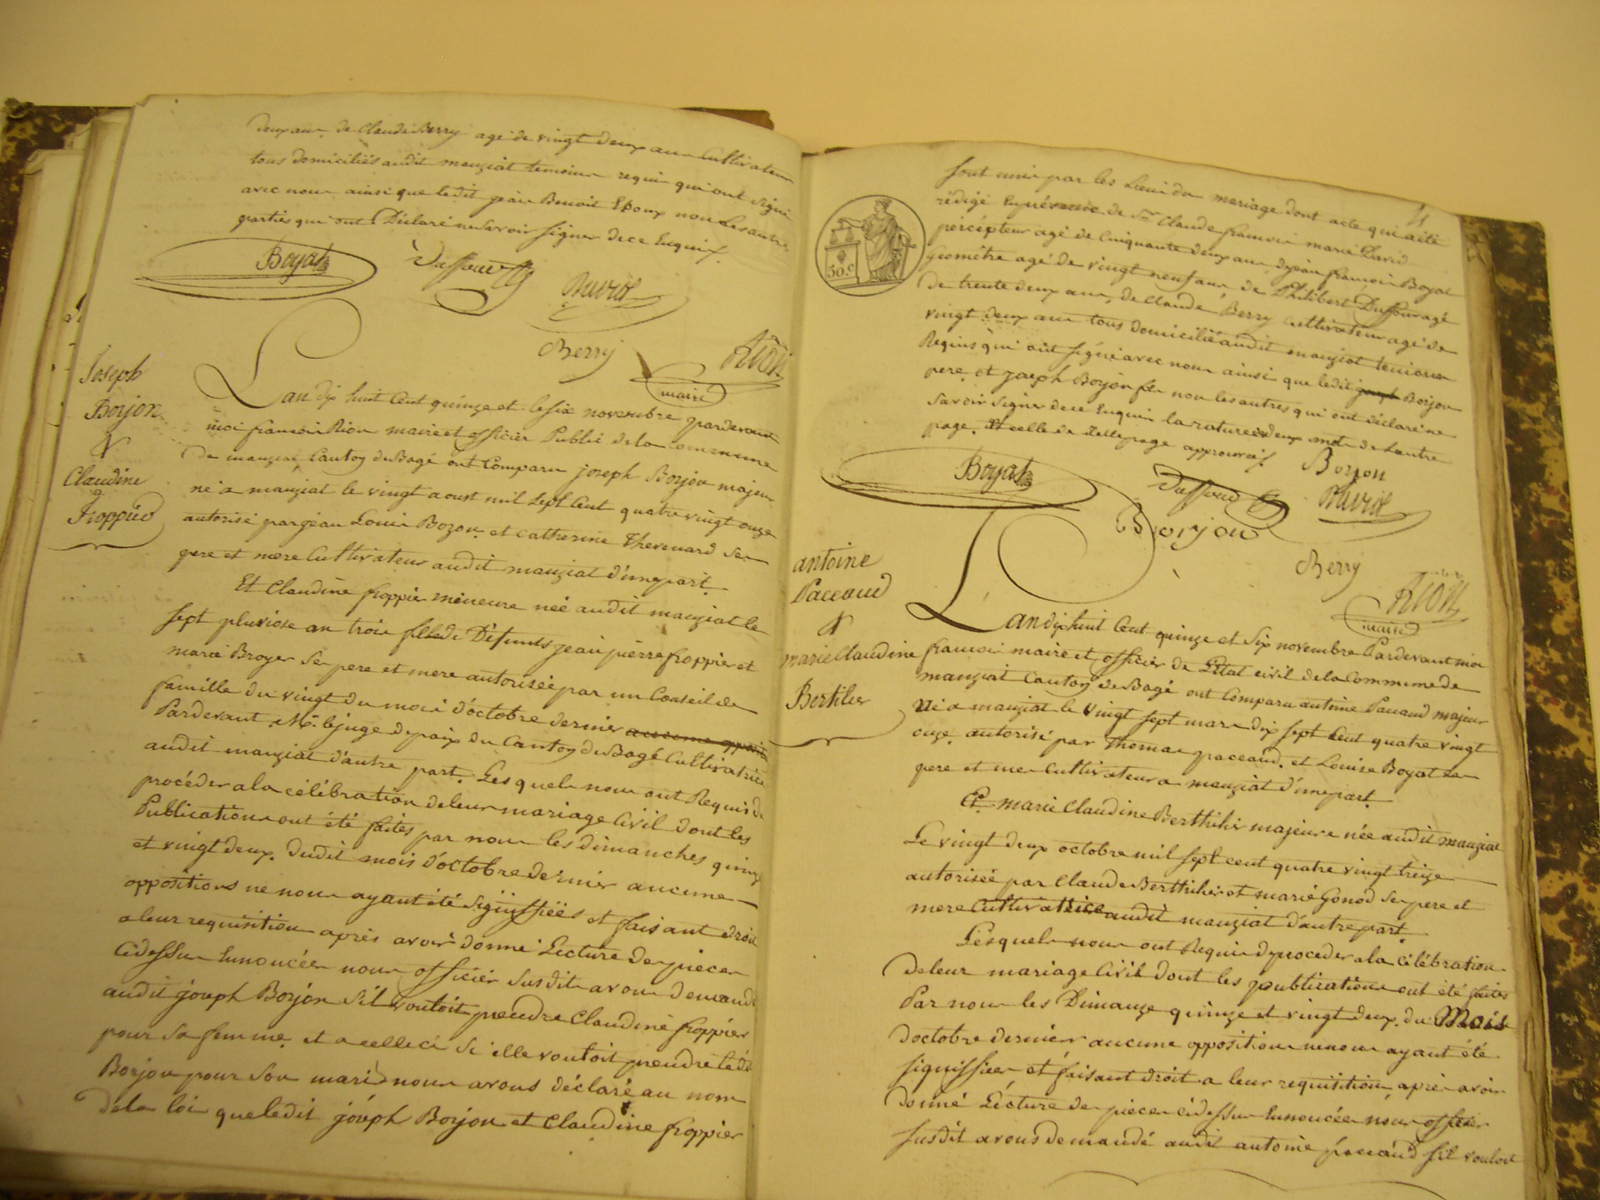 deux ans de Claude Berry agé de vingt deux ans Cultivateur
tous domiciliés audit manziat temoins requis qui ont signé
avec nous ainsi que ledit Benoit Epoux non les autres
parties qui ont Déclaré ne savoir signer de ce Enquis
Boyat
Dufour
David
Berry
Rion
maire
Joseph
Borjon
&
Claudine
froppier
L'an dix huit Cent quinze et le six novembre pardevant
moi francois Rion maire et officier Public de la commune
De manziat Canton de Bagé ont Comparu joseph Borjon majeur
né a manziat le vingt aoust mil sept Cent quatre vingt onze
autorisé par jean Louis Bozon et catherine Thevenard ses
pere et mere Cultivateurs audit manziat d'une part
Et Claudine froppier mineure née audit manziat le
sept pluviose an trois fille de Défunts jean pierre froppier et
marie Broyer ses pere et mere autorisée par un Conseil de
famille du vingt du mois d'octobre dernier
Pardevant Mr. le juge de paix du Canton de Bagé Cultivatrice
audit manziat d'autre part. Lesquels nous ont Requis de
procéder a la célébration de leur mariage Civil dont les
Publications ont été faites par nous les dimanches quinze
et vingt deux dudit mois d'octobre dernier aucune
oppositions ne nous ayant été signiffiées et faisant droit
a leur requisition après avoir donné Lecture des pieces
Cidessus Enoncées nous officier susdit avons Demandé
audit joseph Borjon s'il vouloit prendre Claudine froppier
pour sa femme et a celle ci si elle vouloit prendre ledit
Borjon pour son mari nous avons déclaré au nom
de la loi que ledit joseph Borjon et Claudine froppier
sont unis par les Liens du mariage dont acte qui a été
rédigé En présence de Sr Claude francois marie David
percépteur agé de Cinquante deux ans, de jean francois Boyat
Géomètre agé de vingt neuf ans, de Philibert Dufour agé
De trente deux ans, de Claude Berry cultivateur agé de
vingt deux ans tous domiciliés audit manziat temoins
Requis qui ont signé avec nous ainsi que ledit joseph Borjon
pere et joseph Borjon fils non les autres qui ont déclaré ne
savoir signer de ce Enquis la rature de deux mots de l'autre
page et celle de cette page approuvés
50.c
Boyat
Dufour
Borjon
David
Borjon
Berry
Rion
maire
antoine
Paccaud
&
marie Claudine
Berthilier
L'an dix huit Cent quinze et six novembre Pardevant moi
francois maire et officier de L'Etat civil de la Commune de
manziat Canton de Bagé ont Comparu antoine Paccaud majeur
né a manziat le vingt sept mars dix sept Cent quatre vingt
onze autorisé par Thomas paccaud et Louise Boyat ses
pere et mere Cultivateurs a manziat d'une part
Et marie Claudine Berthilier majeure née audit manziat
Le vingt deux octobre mil sept cent quatre vingt treize
autorisée par Claude Berthilier et marie Gonod ses pere et
mere Cultivatrice audit manziat d'autre part
Lesquels nous ont Requis de proceder a la Célébration
de leur mariage Civil dont les publications ont été faites
Par nous les Dimanze quinze et vingt deux du Mois
doctobre dernier aucune opposition ne nous ayant été
signiffiées et faisant droit a leur requisition, après avoir
donné Lécture des pieces cidessus Enoncées nous officier
susdit avons demandé audit antoine paccaud s'il vouloit